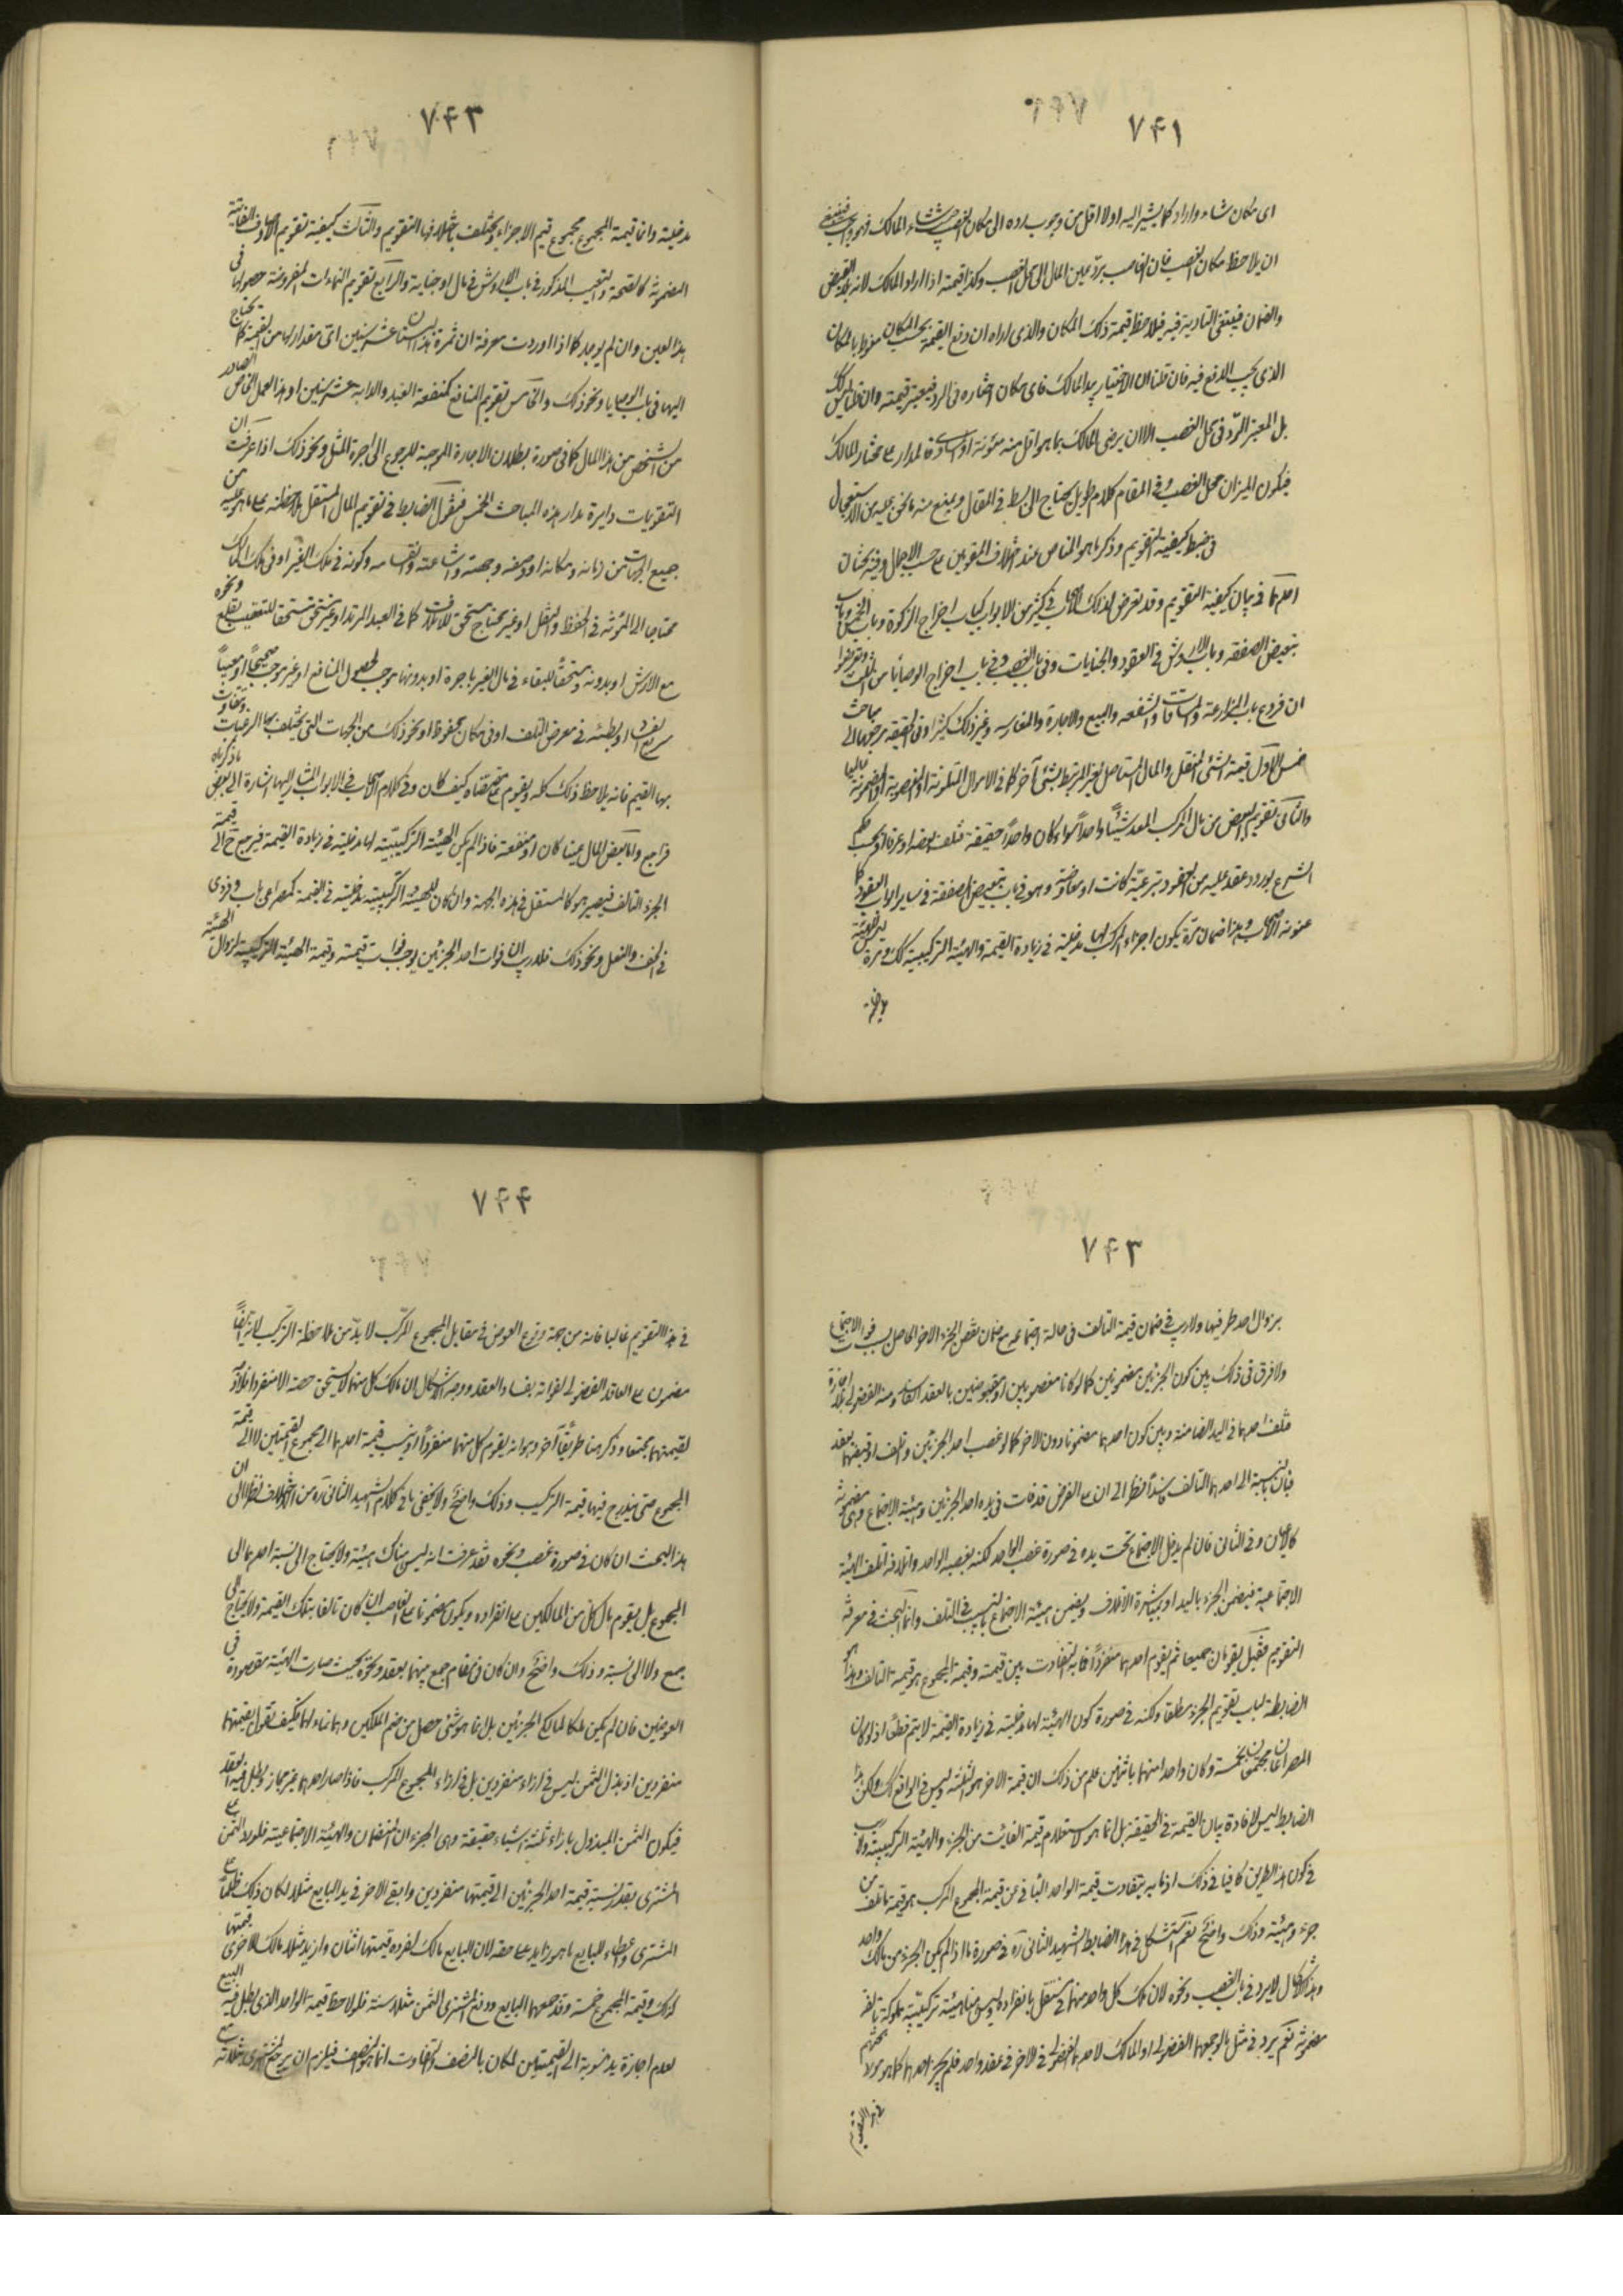 ٧۴١
اى مكان شاء واراد كما يشير اليه اولا اقل من وجوب رده الى مكان الغصب حيث شاء المالك فهو واجب فينبغى
ان يلاحظ مكان الغصب فان الغاصب يرد عين المال الى محل الغصب وكذا قيمته اذا اراد المالك لانه
والضمان فيقتضى التادية فيه فيلاحظ قيمة ذلك المكان والذى اراه ان دفع القيمة بحسب المكان منوط بالمكان
الذى يجب الدفع فيه فان قلنا ان الاختيار بيد المالك فاى مكان اختاره فى الرد فيعتبر قيمته وان قلنا ليس كذلك
بل المعتبر الرد فى محل الغصب الا ان يرضى المالك بما هو اقل منه مؤنة او فالمدار على مختار المالك
فيكون الميزان محل الغصب وفى المقام كلام طويل يحتاج الى بسط فى المقال ويمنع منه ما نحن عليه من الاستعجال
فى ضبط كيفية التقويم وذكر ما هو المناص عند اختلاف المقومين على حسب الاجمال وفيه بحثان
احدهما فى بيان كيفية التقويم وقد تعرض لذلك الاصحاب فى كثير من الابواب كباب اخراج الزكوة وباب الخمس وباب
تبعيض الصفقه وباب الارش فى العقود والجنايات وفى باب الغصب وفى باب اخراج الوصايا من الثلث وتعرضوا
ان فروع باب المزارعة والمساقات والشفعه والبيع والاجارة والمغارسه وغير ذلك كثيرا وفى الحقيقه مرجعها الى مباحث
خمس الاول قيمة الشئ المنفصل والمال المستاصل الغير المرتبط بشئ آخر كما فى الاموال المتلوفة او المغصوبة او المضمونة غالبا
والثانى تقويم البعض من مال المركب المعد شيئا واحدا سواء كان واحدا حقيقة فتلف بعضه او عرفا او بحسب حكم
الشرع بورود عقد عليه من العقود تبرعية كانت او معاوضة وهو فى باب تبعيض الصفقة فى ساير ابواب العقود كما
عنونه الاصحاب وهذا ضمان مرة يكون اجزاء المركب لها مدخلية فى زيادة القيمة والهيئة التركيبية كك ومرة ليس للهيئة
٧۴٢
مدخلية وانما قيمة المجموع مجموع قيم الاجزاء ويختلف باختلافها التقويم والثالث كيفية تقويم الاوصاف الفائتة
المضمونة كالصحة والتعيب المذكور فى باب الارش فى مال او جناية والرابع تقويم النماءات المفروضة حصولها فى
هذا العين وان لم يوجد كما اذا اوردت معرفة ان ثمرة هذا البستان عشر سنين اى مقدار لها من القيمة كما تحتاج
اليها فى باب الوصايا ونحو ذلك والخامس تقويم المنافع كمنفعة العبد والدابة عشر سنين او هذا العمل الخاص الصادر
من الشخص من هذا المال كما فى صورة بطلان الاجارة الموجبة للرجوع الى اجرة المثل ونحو ذلك اذا عرفت ان
التقويمات دايرة مدار هذه المباحث الخمس فنقول الضابط فى تقويم المال المستقل ملاحظته على ما هو عليه من
جميع الجهات من زمانه ومكانه او وصفه وجهته واشاعته وانقسامه وكونه فى ملك الغير او فى ملك المالك
محتاجا الى المؤنة فى الحفظ والنقل او غير محتاج مستحق للاتلاف كما فى العبد المرتد او غير مستحق مستحقا للتعقيب بقلع ونحوه
مع الارش او بدونه مستحقا للبقاء فى مال الغير باجرة او بدونها موجب لحصول المنافع او غير موجب صحيحا او معيبا
سريع الفساد او بطيئه فى معرض التلف او فى مكان محفوظ او نحو ذلك من الجهات التى يختلف بها الرغبات وتتفاوت
بها القيم فانه يلاحظ ذلك كله ويقوم على مقتضاه كيف كان وفى كلام الاصحاب فى الابواب المشار اليها اشارة الى بعض ما ذكرناه
فراجع واما بعض المال عينا كان او منفعة فاذا لم يكن الهيئة التركيبية لها مدخلية فى زيادة القيمة فيرجع ح الى قيمة
الجزء التالف فيصير هو كالمستقل فى هذه الجهة وان كان للهيئة التركيبية مدخلية فى القيمة كمصراعى باب وفردى
فى الخف والنعل ونحو ذلك فلا ريب ان فوات احد الجزئين يوجب فوات قيمته وقيمة الهيئة التركيبية لزوال الهيئة
٧۴٣
بزوال احد طرفيها ولا ريب فى ضمان قيمة التالف فى حالة اجتماعه مع ضمان نقص الجزء الاخر الحاصل بسبب فوات الاجتماع
ولا فرق فى ذلك بين كون الجزئين مضمونين كما لو كانا مغصوبين او مقبوضين بالعقد الفاسد ومنه الفضولى بلا اجازة
فتلف احدهما فى اليد الضامنة وبين كون احدهما مضمونا دون الاخر كما لو غصب احد الجزئين وتلف او قبضهما بعقد
فبان بالنسبة الى احدهما التالف فاسدا نظرا الى ان على الفرض قد فات فى يده احد الجزئين وهيئة الاجتماع وهى مضمونة
كالاعيان وفى الثانى فان لم يدخل الاجتماع تحت يده فى صورة غصب الواحد لكنه بغصبه الواحد واتلافه اتلف الهيئة
الاجتماعية فيضمن الجزء باليد او بمباشرة الاتلاف ويضمن هيئة الاجتماع بالتسبيب فى التلف وانما البحث فى معرفة
التقويم فقيل يقومان جميعا ثم يقوم احدهما منفردا فما به التفاوت بين قيمته وقيمة المجموع هو قيمة التالف وهذا هو
الضابطة لباب تقويم الجزء مطلقا ولكنه فى صورة كون الهيئة لها مدخلية فى زيادة القيمة لا يتم قطعا اذ لو كان
المصراعان مجتمعين بخمسة وكان واحد منهما باثنين علم من ذلك ان قيمة الاخر هو الثلثة وليس فى الواقع كك ولكن هذا
الضابط ليس لافادة بيان القيمة فى الحقيقة بل انما هو لاستعلام قيمة الفائت من الجزء والهيئة التركيبية ولا ريب
فى كون هذا الطريق كافيا فى ذلك اذ ما به يتفاوت قيمة الواحد الباقى عن قيمة المجموع المركب هو قيمة ما تلف من
جزء وهيئة وذلك واضح نعم استشكل فى هذا الضابط الشهيد الثانى ره فى صورة ما اذا لم يكن الجزءان من مالك واحد
وهذا الاشكال لا يرد فى باب الغصب ونحوه لان ملك كل واحد منهما مستقل بانفراده وليس هنا هيئة تركيبية مملوكة تالفة
مضمونة نعم يرد فى مثل ما لو جمعهما الفضولى او المالك لاحدهما الفضولى فى الاخر فى عقد واحد فلم يجز احدهما كما هو مورد بحثهم
فى هذا التقويم
٧۴۴
فى هذا التقويم غالبا فانه من جهة وقوع العوض فى مقابل المجموع المركب لا بد من ملاحظة التركيب لانه ايضا
مضمون على العاقد الفضولى لفواته بفساد العقد ووجه الاشكال ان مالك كل منهما لا يستحق حصة الا منفردا فلا
لقيمتهما مجتمعا وذكر هنا طريقا آخر وهو انه يقوم كل منهما منفردا وينسب قيمة احدهما الى مجموع القيمتين لا الى قيمة
المجموع حتى يندرج فيها قيمة التركيب وذلك واضح ولا يخفى ما فى كلام الشهيد الثانى ره من الاختلاف نظرا الى ان
هذا البحث ان كان فى صورة غصب ونحوه فقد عرفت انه ليس هناك هيئة ولا يحتاج الى نسبة احدهما الى
المجموع بل يقوم مال كل من المالكين على انفراده ويكون مضمونا على الغاصب ان كان تالفا بتلك القيمة ولا يحتاج الى
جمع ولا الى نسبة وذلك واضح وان كان فى مقام جمع بينهما بعقد ونحوه بحيث صارت الهيئة مقصودة فى
العوضين فان لم يكن ملكا لمالكى الجزئين بل انما هو شئ حصل من ضم الملكين وهما نماء لهما فكيف نقول بقيمتهما
منفردين اذ بذل الثمن ليس فى ازاء منفردين بل فى ازاء المجموع المركب فاذا صار احدهما غير مجاز وبطل فيه العقد
فيكون الثمن المبذول بازاء ثلثة اشياء حقيقة وهى الجزءان المنضمان والهيئة الاجتماعية فلو رد الثمن على
المشترى بقدر نسبة قيمة احد الجزئين الى قيمتهما منفردين وابقى الاخر فى يد البايع مثلا لكان ذلك ظلما على
المشترى واعطاء للبايع ما هو زايد على حقه لان البايع مالك لفرده قيمتها اثنان وازيد مثلا مالك الاخرى قيمتها
كذلك وقيمة المجموع خمسة وقد جمعهما البايع ودفع المشترى الثمن مثلا ستة فلو لاحظ قيمة الواحد الذى بطل فيه البيع
لعدم اجازة يد منسوبة الى القيمتين لكان بالنصف والتفاوت انما هو النصف فيلزم ان يرجع المشترى بثلاثة مع